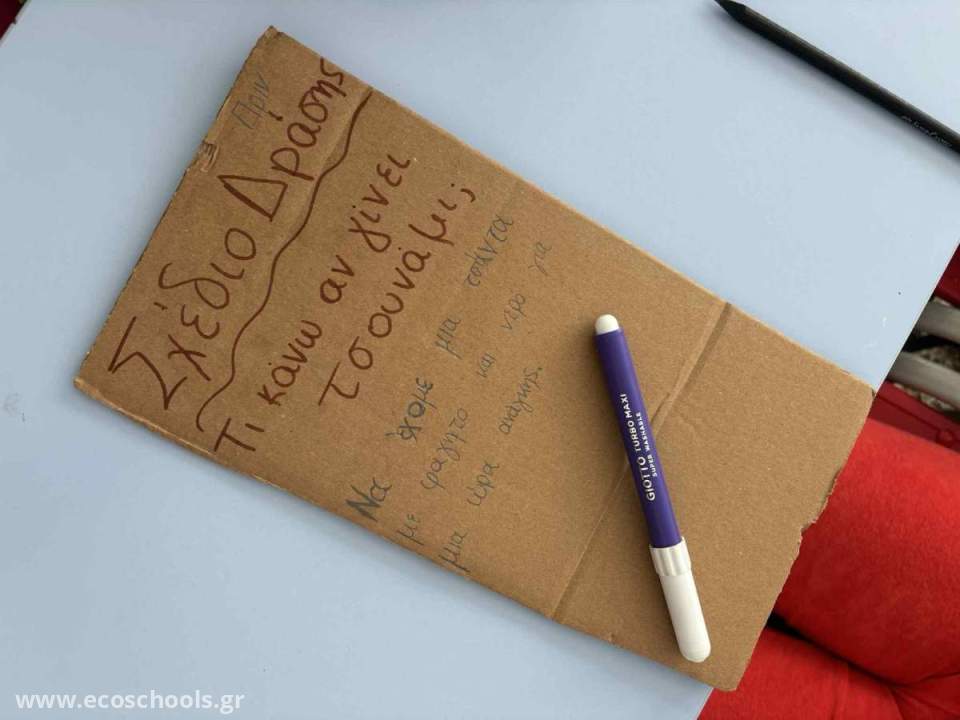 Πριν
Σχέδιο Δράσης
Τι κάνω αν γίνει
τσουνάμι;
Να έχομε μια τσάντα
με φαγητό και νερο για
μια ώρα αναγκης.
GIOTTO TURBO MAXI
SUPER WASHABLE
www.ecoschools.gr